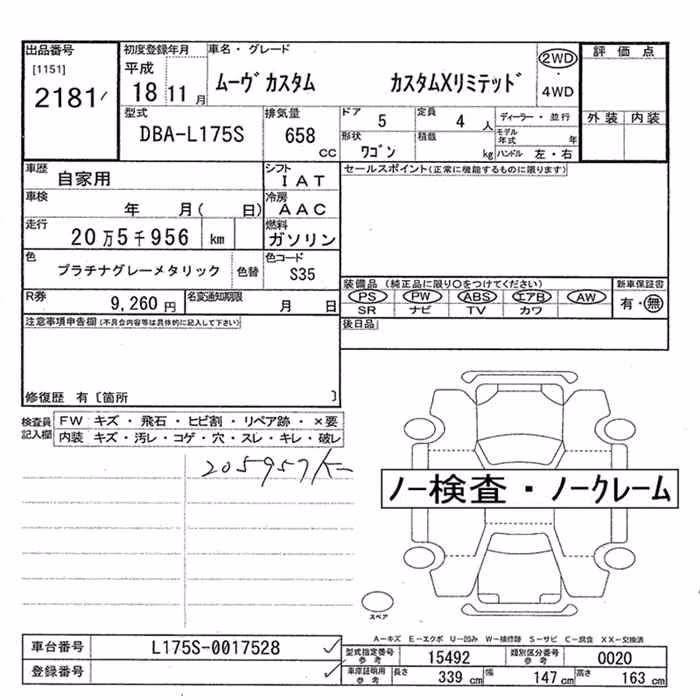 出品番号 初度登録年月 車名・グレード 評価点
[1151] 平成 2WD
2181 18 11月 ムーヴ カスタム カスタムXリミテッド ・
4WD
型式 排気量 ドア 5 定員 4人 ディーラー・並行 外装 内装
DBA-L175S 658 cc 形状 ワゴン 積載 kg モデル年式 年
ハンドル 左・右
車歴 自家用 シフト IAT セールスポイント(正常に機能するものに限ります)
車検 年 月( 日) 冷房 AAC
走行 20万5千956 km 燃料 ガソリン
色 プラチナグレーメタリック 色替 色コード S35
装備品(純正品に限り○をつけてください) 新車保証書
PS PW ABS エアB AW 有・無
SR ナビ TV カワ
R券 9,260円 名変通知期限 月 日
注意事項申告欄(不具合内容等は具体的に記入して下さい) 後日品
修復歴 有〔箇所 〕
検査員記入欄 FW キズ・飛石・ヒビ割・リペア跡・×要
内装 キズ・汚レ・コゲ・穴・スレ・キレ・破レ
205957K
ノー検査・ノークレーム
スペア
A-キズ E-エクボ U-凹み W-補修跡 S-サビ C-腐食 XX-交換済
車台番号 L175S-0017528 型式指定番号 参考 15492 類別区分番号 参考 0020
登録番号 車庫証明用 参考 長さ 339cm 幅 147cm 高さ 163cm